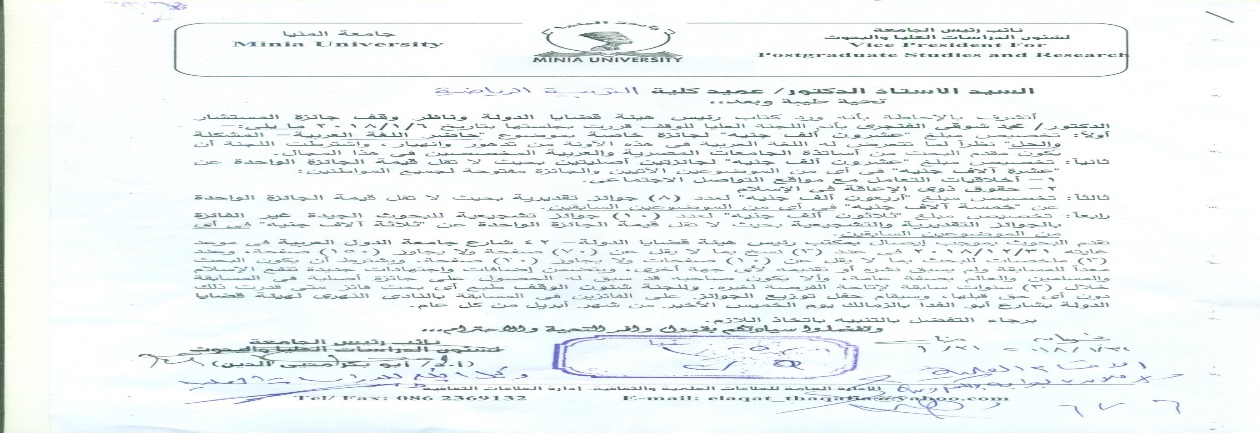 جامعة المنيا
Minia University
MINIA UNIVERSITY
نائب رئيس الجامعة
لشئون الدراسات العليا والبحوث
Vice President For
Postgraduate Studies and Research
السيد الأستاذ الدكتور/ عميد كلية التربية الرياضية
تحية طيبة وبعد،،
أتشرف بالإحاطة بأنه ورد كتاب رئيس هيئة قضايا الدولة وناظر وقف جائزة المستشار
الدكتور/ محمد شوقى الفنجرى بأن اللجنة العليا للوقف قررت بجلستها بتاريخ ٢٠١٨/١/٦ ما يلى:-
أولاً: تخصيص مبلغ "عشرون ألف جنيه" لجائزة خاصة بموضوع "حاضر اللغة العربية – المشكلة
والحل" نظراً لما تتعرض له اللغة العربية فى هذه الآونة من تدهور وانهيار، واشترطت اللجنة أن
يكون مقدم البحث من أساتذة الجامعات المصرية والعربية المتخصصين فى هذا المجال.
ثانياً: تخصيص مبلغ "عشرون ألف جنيه" لجائزتين أصليتين بحيث لا تقل قيمة الجائزة الواحدة عن
"عشرة آلاف جنيه" فى أى من الموضوعين الآتيين والجائزة مفتوحة لجميع المواطنين:
١- أخلاقيات التعامل مع مواقع التواصل الاجتماعى.
٢- حقوق ذوى الإعاقة فى الإسلام
ثالثاً: تخصيص مبلغ "أربعون ألف جنيه" لعدد (٨) جوائز تقديرية بحيث لا تقل قيمة الجائزة الواحدة
عن "خمسة آلاف جنيه" فى أى من الموضوعين السابقين.
رابعاً: تخصيص مبلغ "ثلاثون ألف جنيه" لعدد (١٠) جوائز تشجيعية للبحوث الجيدة غير الفائزة
بالجوائز التقديرية والتشجيعية بحيث لا تقل قيمة الجائزة الواحدة عن "ثلاثة آلاف جنيه" فى أى
من الموضوعين السابقين.
تقدم البحوث بموجب إيصال بمكتب رئيس هيئة قضايا الدولة – ٤٢ شارع جامعة الدول العربية فى موعد
غايته ٢٠١٨/١٢/٣١ من (٣) نسخ بما لا يقل عن (٧٠) صفحة ولا يجاوز (١٥٠) صفحة، وعدد
(٣) ملخصات للبحث بما لا يقل عن (١٠) صفحات ولا يجاوز (٢٠) صفحة، ويشترط أن يكون البحث
معداً للمسابقة ولم يسبق نشره أو تقديمه لأى جهة أخرى، ويتضمن إضافات واجتهادات جديدة تنفع الإسلام
والمسلمين والعالم بصفة عامة، وألا يكون صاحبه قد سبق له الحصول على جائزة أصلية فى المسابقة
خلال (٣) سنوات سابقة لإتاحة الفرصة لغيره. وللجنة شئون الوقف طبع أى بحث فائز متى قدرت ذلك
دون أى حق قبلها، وسيقام حفل توزيع الجوائز على الفائزين فى المسابقة بالنادى النهرى لهيئة قضايا
الدولة بشارع أبو الفدا بالزمالك يوم الخميس الأخير من شهر أبريل من كل عام.
برجاء التفضل بالتنبيه باتخاذ اللازم.
وتفضلوا سيادتكم بقبول وافر التحية والاحترام،،،
نائب رئيس الجامعة
لشئون الدراسات العليا والبحوث
(أ.د/ أبو بكر محيى الدين)
الإدارة العامة للعلاقات العلمية والثقافية - إدارة العلاقات الثقافية
Tel/ Fax: 086 2369132 E-mail: elaqat_thaqafia@yahoo.com